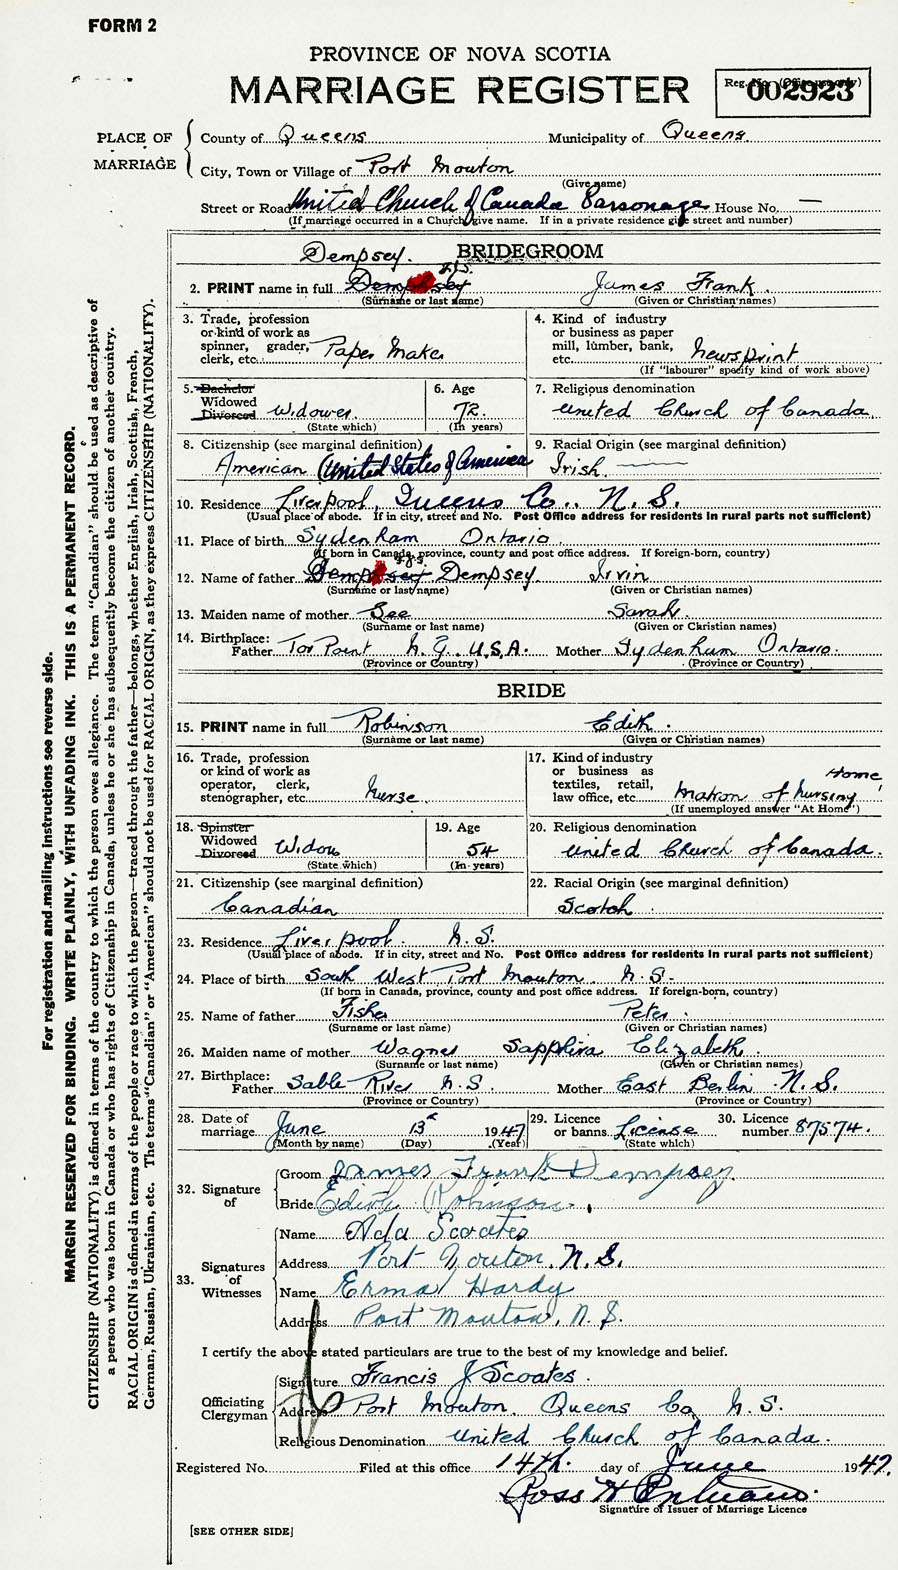 FORM 2
PROVINCE OF NOVA SCOTIA
MARRIAGE REGISTER
Reg. No. (Office use only)
002923
PLACE OF MARRIAGE
County of Queens Municipality of Queens.
City, Town or Village of Port Mouton
(Give name)
Street or Road United Church of Canada Parsonage House No. —
(If marriage occurred in a Church give name. If in a private residence give street and number)
Dempsey. BRIDEGROOM
2. PRINT name in full James Frank.
(Surname or last name) (Given or Christian names)
3. Trade, profession or kind of work as spinner, grader, clerk, etc. Paper Maker
4. Kind of industry or business as paper mill, lumber, bank, etc. Newsprint
(If "labourer" specify kind of work above)
5. Bachelor Widowed Divorced Widower.
(State which)
6. Age 72.
(In years)
7. Religious denomination United Church of Canada.
8. Citizenship (see marginal definition)
American (United States of America
9. Racial Origin (see marginal definition)
Irish. —
10. Residence Liverpool, Queens Co., N. S.
(Usual place of abode. If in city, street and No. Post Office address for residents in rural parts not sufficient)
11. Place of birth Sydenham Ontario.
(If born in Canada, province, county and post office address. If foreign-born, country)
12. Name of father Dempsey. Irvin
(Surname or last name) (Given or Christian names)
13. Maiden name of mother Bee Sarah.
(Surname or last name) (Given or Christian names)
14. Birthplace: Father Tor Point N.Y. U.S.A. Mother Sydenham Ontario.
(Province or Country) (Province or Country)
BRIDE
15. PRINT name in full Robinson Edith.
(Surname or last name) (Given or Christian names)
16. Trade, profession or kind of work as operator, clerk, stenographer, etc. Nurse.
17. Kind of industry or business as textiles, retail, law office, etc. Matron of Nursing Home
(If unemployed answer "At Home")
18. Spinster Widowed Divorced Widow
(State which)
19. Age 54
(In years)
20. Religious denomination United Church of Canada.
21. Citizenship (see marginal definition)
Canadian
22. Racial Origin (see marginal definition)
Scotch.
23. Residence Liverpool. N.S.
(Usual place of abode. If in city, street and No. Post Office address for residents in rural parts not sufficient)
24. Place of birth South West Port Mouton N.S.
(If born in Canada, province, county and post office address. If foreign-born, country)
25. Name of father Fisher Peter.
(Surname or last name) (Given or Christian names)
26. Maiden name of mother Wagner Sapphira Elizabeth.
(Surname or last name) (Given or Christian names)
27. Birthplace: Father Sable River N.S Mother East Berlin N.S.
(Province or Country) (Province or Country)
28. Date of marriage June 13th 1947
(Month by name) (Day) (Year)
29. Licence or banns License
(State which)
30. Licence number 87574.
32. Signature of
Groom James Frank Dempsey.
Bride Edith Robinson.
33. Signatures of Witnesses
Name Ada Scoates
Address Port Mouton, N.S.
Name Erma Hardy
Address Port Mouton, N.S.
I certify the above stated particulars are true to the best of my knowledge and belief.
Officiating Clergyman
Signature Francis J Scoates.
Address Port Mouton. Queens Co, N.S.
Religious Denomination United Church of Canada.
Registered No. Filed at this office 14th. day of June 1947.
Ross H
Signature of Issuer of Marriage Licence
[SEE OTHER SIDE]
For registration and mailing instructions see reverse side.
MARGIN RESERVED FOR BINDING. WRITE PLAINLY, WITH UNFADING INK. THIS IS A PERMANENT RECORD.
CITIZENSHIP (NATIONALITY) is defined in terms of the country to which the person owes allegiance. The term "Canadian" should be used as descriptive of
a person who was born in Canada or who has rights of Citizenship in Canada, unless he or she has subsequently become the citizen of another country.
RACIAL ORIGIN is defined in terms of the people or race to which the person—traced through the father—belongs, whether English, Irish, Scottish, French,
German, Russian, Ukrainian, etc. The terms "Canadian" or "American" should not be used for RACIAL ORIGIN, as they express CITIZENSHIP (NATIONALITY).